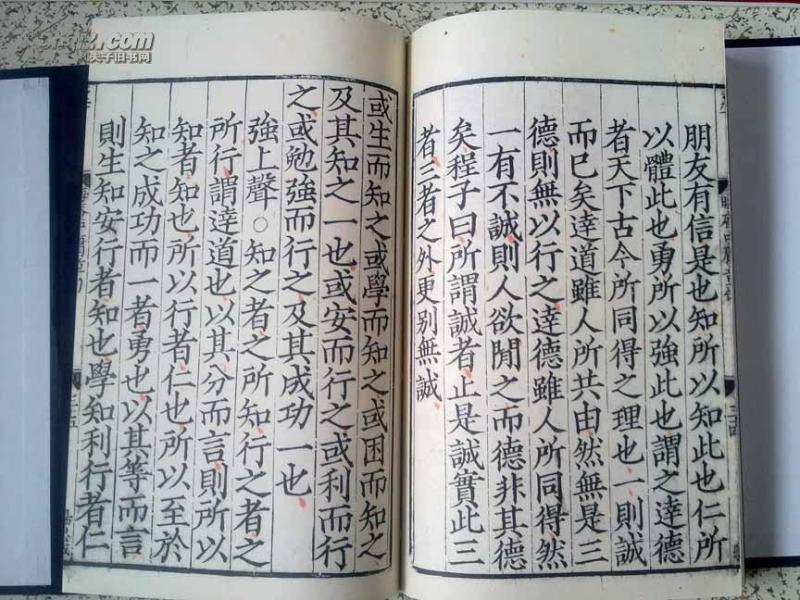 朋友有信是也知所以知此也仁所
以體此也勇所以強此也謂之達德
者天下古今所同得之理也一則誠
而已矣達道雖人所共由然無是三
德則無以行之達德雖人所同得然
一有不誠則人欲閒之而德非其德
矣程子曰所謂誠者止是誠實此三
者三者之外更別無誠
三四
或生而知之或學而知之或困而知之
及其知之一也或安而行之或利而行
之或勉強而行之及其成功一也
強上聲○知之者之所知行之者之
所行謂達道也以其分而言則所以
知者知也所以行者仁也所以至於
知之成功而一者勇也以其等而言
則生知安行者知也學知利行者仁
三五
夫子旧书网